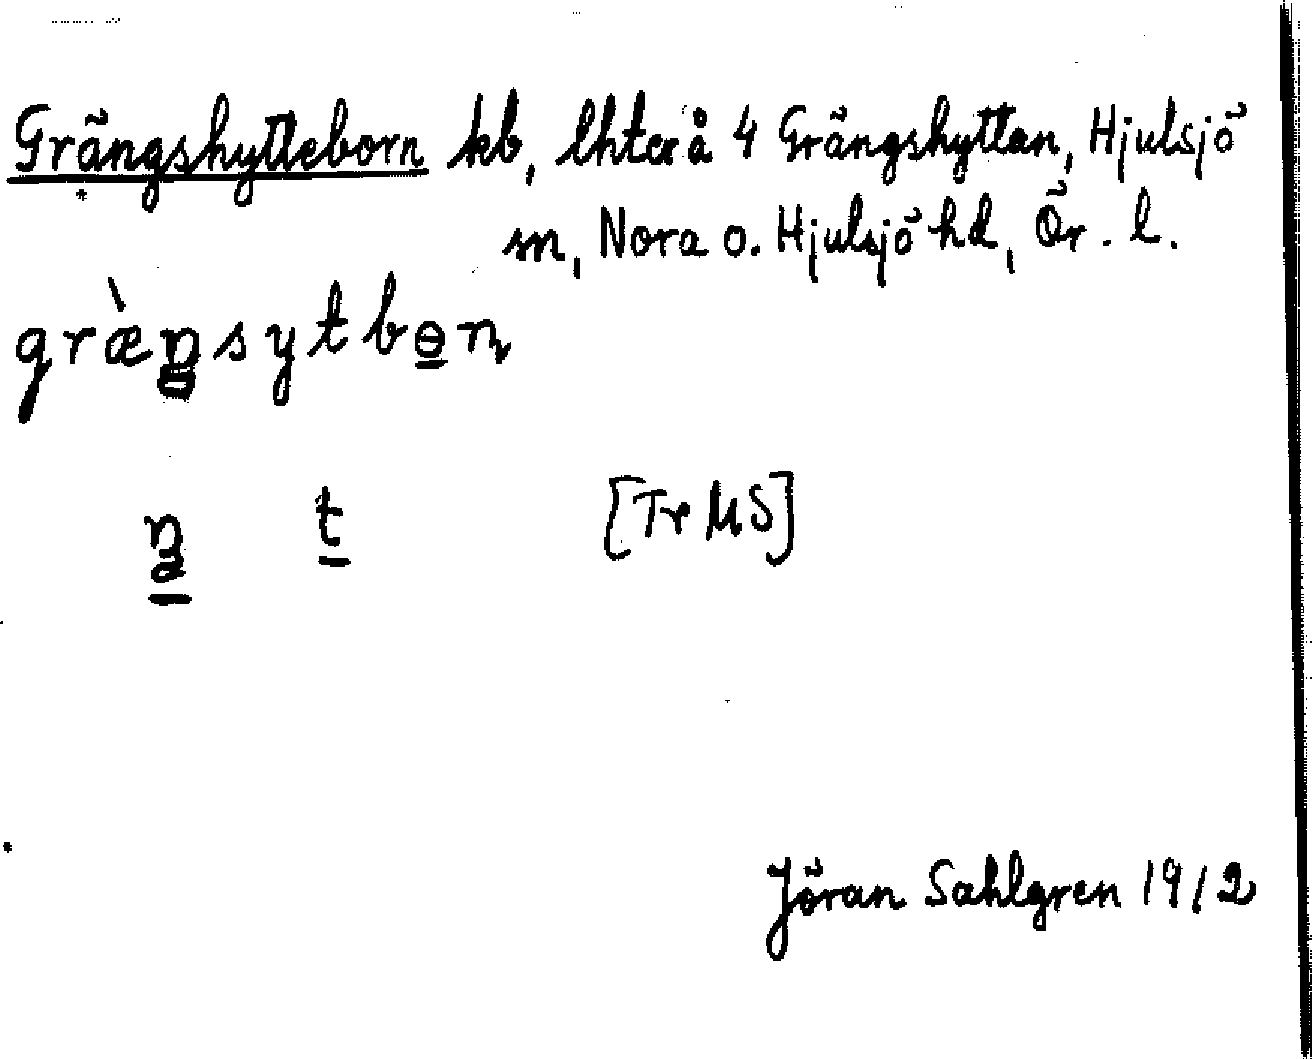 Grängshytteborn kb, lhterå 4 Grängshyttan, Hjulsjö
sn, Nora o. Hjulsjö hd, Ör. l.
græ̀ŋsytbɵn
ŋ t [Tr MS]
Jöran Sahlgren 1912